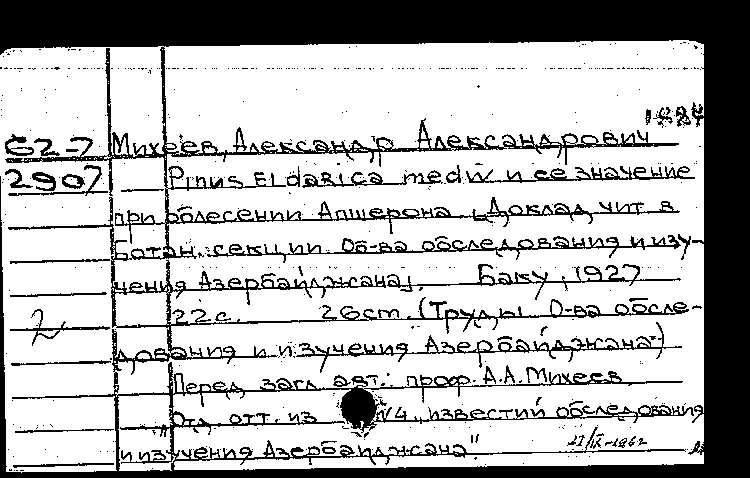 1884
Г2-7 Михеев, Александр Александрович
2907 Pinus Eldarica medw и ее значение
при облесении Апшерона [Доклад, чит в
Ботан. секции Об-ва обследования и изу-
чения Азербайджана]. Баку, 1927
2 22с. 26cm. (Труды О-ва обсле-
дования и изучения Азербайджана)
Перед загл авт.: проф. А.А. Михеев
Отд. отт. из "№4, известий обследования
и изучения Азербайджана"
21/IX-1962